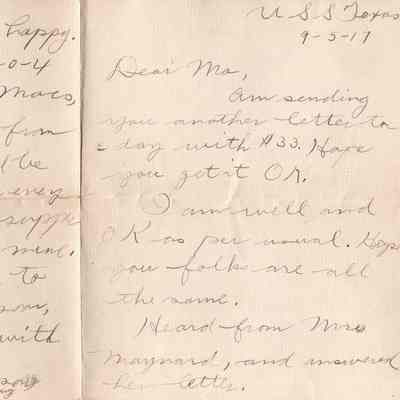 happy.
-0-4
Macs,
from
l be
every
suppe
mene.
to
with
U S S Texas
9-5-17
Dear Ma,
Am sending
you another letter to
= day with $33. Hope
you get it OK.
I am well and
OK as per usual. Hope
you folks are all
the same.
Heard from Mrs
Maynard, and answered
her letter.